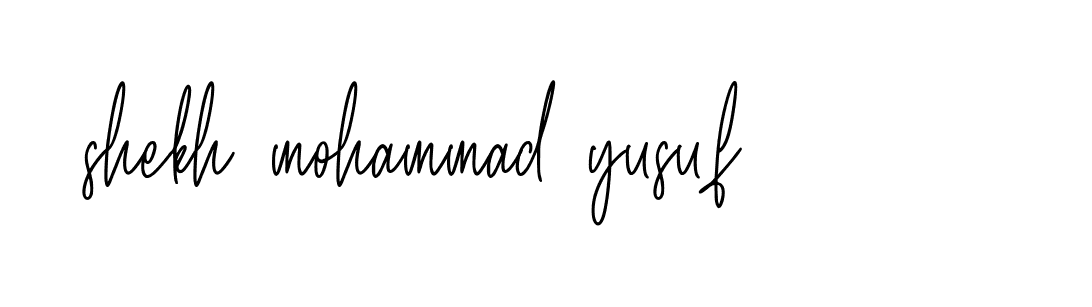 shekh mohammad yusuf